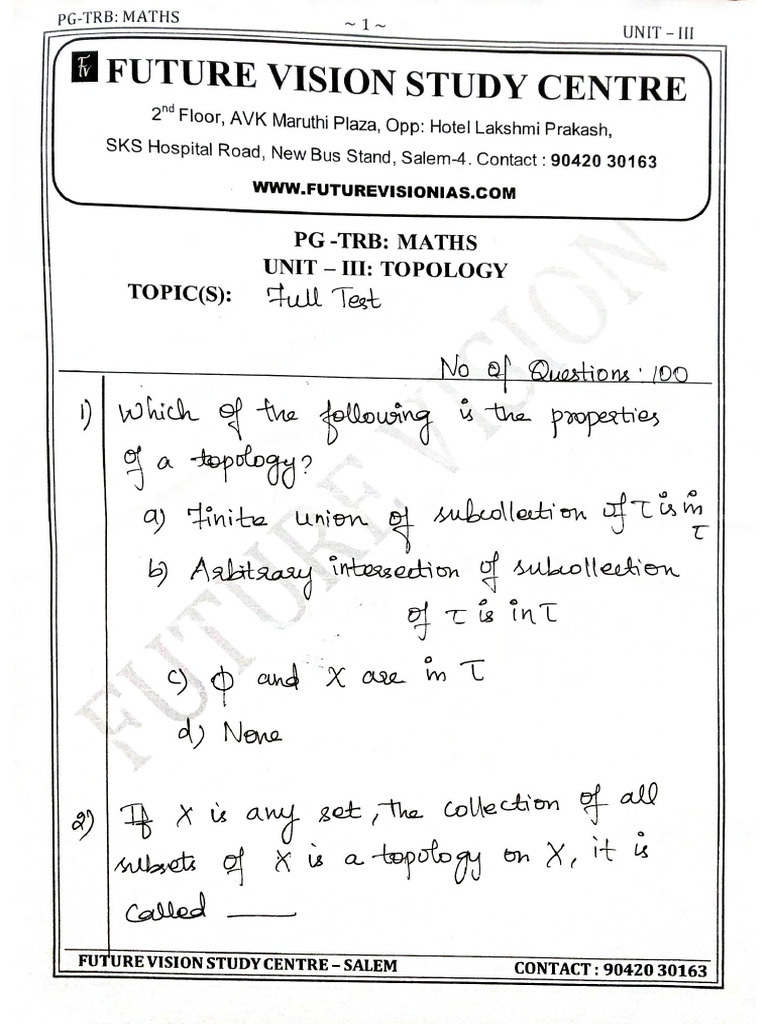 PG-TRB: MATHS
~ 1 ~
UNIT – III
FV FUTURE VISION STUDY CENTRE
2nd Floor, AVK Maruthi Plaza, Opp: Hotel Lakshmi Prakash,
SKS Hospital Road, New Bus Stand, Salem-4. Contact : 90420 30163
WWW.FUTUREVISIONIAS.COM
PG -TRB: MATHS
UNIT – III: TOPOLOGY
TOPIC(S): Full Test
No of Questions: 100
1) Which of the following is the properties
of a topology?
a) Finite union of subcollection of τ is in
τ
b) Arbitrary intersection of subcollection
of τ is in τ
c) ϕ and X are in τ
d) None
2) If X is any set, the collection of all
subsets of X is a topology on X, it is
called ____
FUTURE VISION STUDY CENTRE – SALEM
CONTACT : 90420 30163
FUTURE VISION